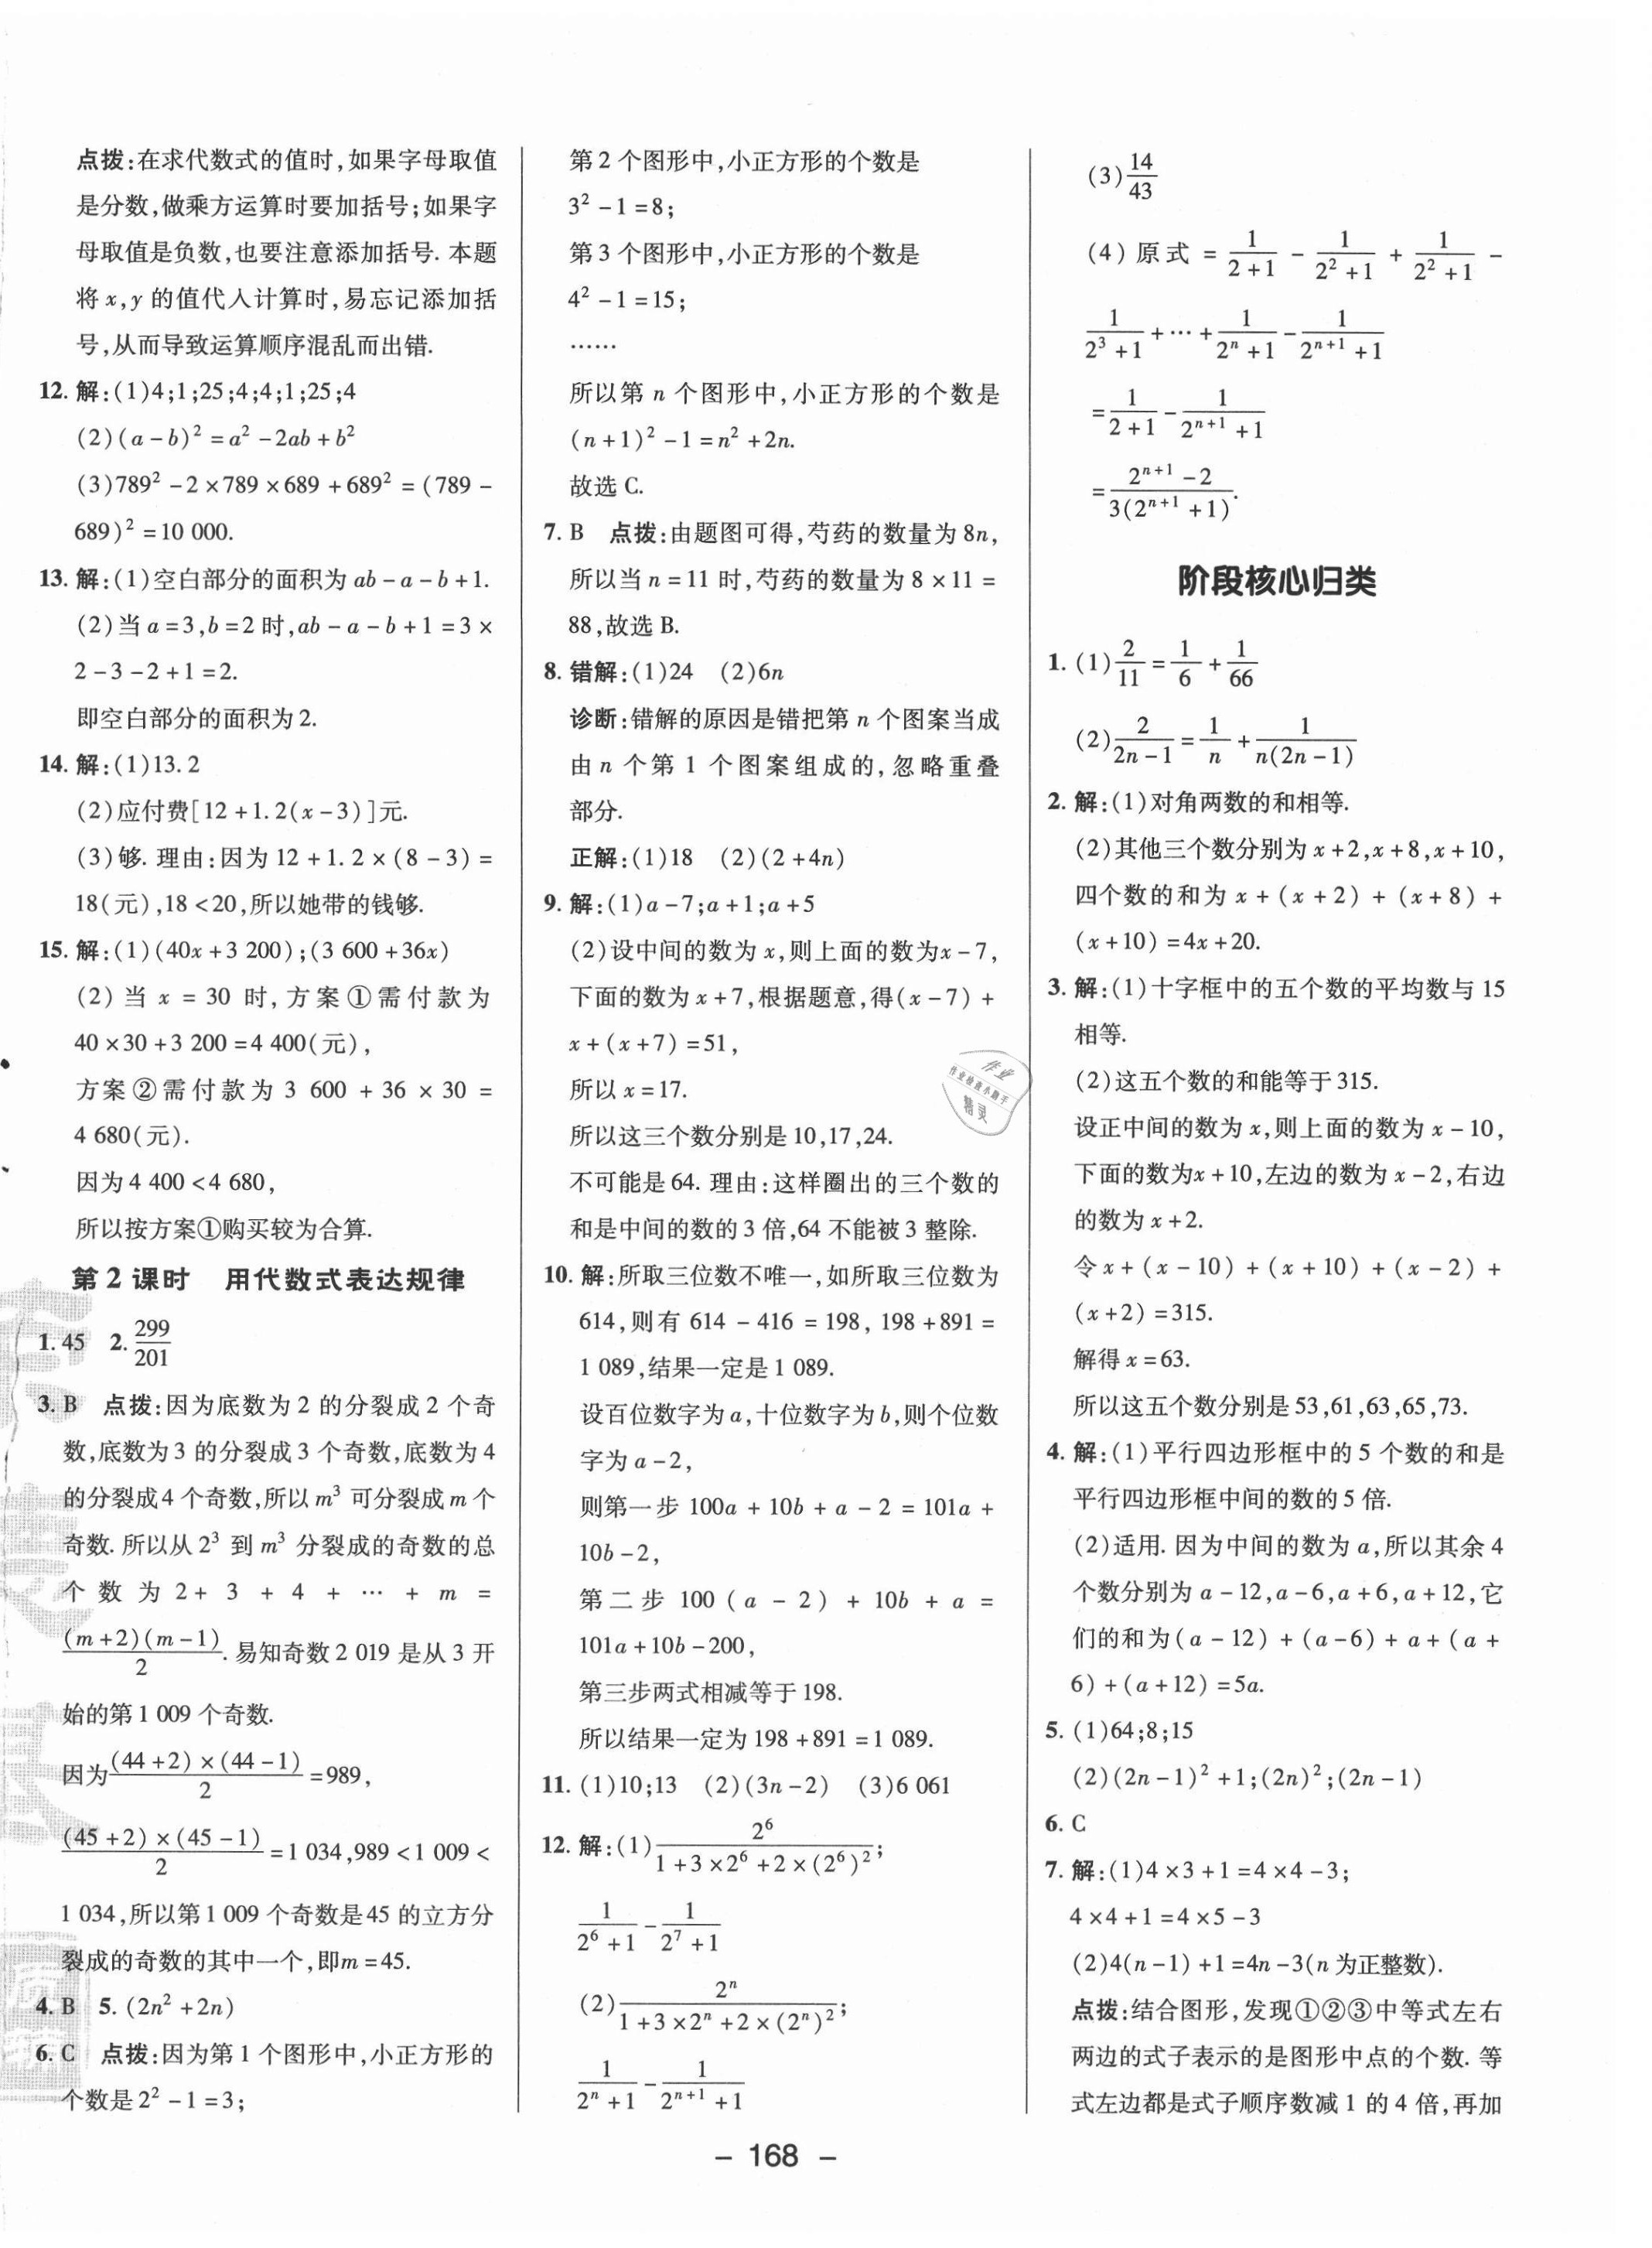 点拨:在求代数式的值时,如果字母取值
是分数,做乘方运算时要加括号;如果字
母取值是负数,也要注意添加括号. 本题
将 x,y 的值代入计算时,易忘记添加括
号,从而导致运算顺序混乱而出错.
12. 解:(1)4;1;25;4;4;1;25;4
(2)(a-b)²=a²-2ab+b²
(3)789²-2×789×689+689²=(789-
689)²=10 000.
13. 解:(1)空白部分的面积为 ab-a-b+1.
(2)当 a=3,b=2 时,ab-a-b+1=3×
2-3-2+1=2.
即空白部分的面积为 2.
14. 解:(1)13.2
(2)应付费[12+1.2(x-3)]元.
(3)够. 理由:因为 12+1.2×(8-3)=
18(元),18<20,所以她带的钱够.
15. 解:(1)(40x+3 200);(3 600+36x)
(2)当 x=30 时,方案①需付款为
40×30+3 200=4 400(元),
方案②需付款为 3 600+36×30=
4 680(元).
因为 4 400<4 680,
所以按方案①购买较为合算.
第 2 课时 用代数式表达规律
1. 45 2. 299/201
3. B 点拨:因为底数为 2 的分裂成 2 个奇
数,底数为 3 的分裂成 3 个奇数,底数为 4
的分裂成 4 个奇数,所以 m³ 可分裂成 m 个
奇数. 所以从 2³ 到 m³ 分裂成的奇数的总
个数为 2+3+4+…+m=
(m+2)(m-1)/2. 易知奇数 2 019 是从 3 开
始的第 1 009 个奇数.
因为 (44+2)×(44-1)/2=989,
(45+2)×(45-1)/2=1 034,989<1 009<
1 034,所以第 1 009 个奇数是 45 的立方分
裂成的奇数的其中一个,即 m=45.
4. B 5. (2n²+2n)
6. C 点拨:因为第 1 个图形中,小正方形的
个数是 2²-1=3;
第 2 个图形中,小正方形的个数是
3²-1=8;
第 3 个图形中,小正方形的个数是
4²-1=15;
……
所以第 n 个图形中,小正方形的个数是
(n+1)²-1=n²+2n.
故选 C.
7. B 点拨:由题图可得,芍药的数量为 8n,
所以当 n=11 时,芍药的数量为 8×11=
88,故选 B.
8. 错解:(1)24 (2)6n
诊断:错解的原因是错把第 n 个图案当成
由 n 个第 1 个图案组成的,忽略重叠
部分.
正解:(1)18 (2)(2+4n)
9. 解:(1)a-7;a+1;a+5
(2)设中间的数为 x,则上面的数为 x-7,
下面的数为 x+7,根据题意,得(x-7)+
x+(x+7)=51,
所以 x=17.
所以这三个数分别是 10,17,24.
不可能是 64. 理由:这样圈出的三个数的
和是中间的数的 3 倍,64 不能被 3 整除.
10. 解:所取三位数不唯一,如所取三位数为
614,则有 614-416=198,198+891=
1 089,结果一定是 1 089.
设百位数字为 a,十位数字为 b,则个位数
字为 a-2,
则第一步 100a+10b+a-2=101a+
10b-2,
第二步 100(a-2)+10b+a=
101a+10b-200,
第三步两式相减等于 198.
所以结果一定为 198+891=1 089.
11. (1)10;13 (2)(3n-2) (3)6 061
12. 解:(1) 2⁶/(1+3×2⁶+2×(2⁶)²);
1/(2⁶+1)-1/(2⁷+1)
(2) 2ⁿ/(1+3×2ⁿ+2×(2ⁿ)²);
1/(2ⁿ+1)-1/(2ⁿ⁺¹+1)
(3) 14/43
(4)原式=1/(2+1)-1/(2²+1)+1/(2²+1)-
1/(2³+1)+…+1/(2ⁿ+1)-1/(2ⁿ⁺¹+1)
=1/(2+1)-1/(2ⁿ⁺¹+1)
=(2ⁿ⁺¹-2)/(3(2ⁿ⁺¹+1)).
阶段核心归类
1. (1) 2/11=1/6+1/66
(2) 2/(2n-1)=1/n+1/(n(2n-1))
2. 解:(1)对角两数的和相等.
(2)其他三个数分别为 x+2,x+8,x+10,
四个数的和为 x+(x+2)+(x+8)+
(x+10)=4x+20.
3. 解:(1)十字框中的五个数的平均数与 15
相等.
(2)这五个数的和能等于 315.
设正中间的数为 x,则上面的数为 x-10,
下面的数为 x+10,左边的数为 x-2,右边
的数为 x+2.
令 x+(x-10)+(x+10)+(x-2)+
(x+2)=315.
解得 x=63.
所以这五个数分别是 53,61,63,65,73.
4. 解:(1)平行四边形框中的 5 个数的和是
平行四边形框中间的数的 5 倍.
(2)适用. 因为中间的数为 a,所以其余 4
个数分别为 a-12,a-6,a+6,a+12,它
们的和为(a-12)+(a-6)+a+(a+
6)+(a+12)=5a.
5. (1)64;8;15
(2)(2n-1)²+1;(2n)²;(2n-1)
6. C
7. 解:(1)4×3+1=4×4-3;
4×4+1=4×5-3
(2)4(n-1)+1=4n-3(n 为正整数).
点拨:结合图形,发现①②③中等式左右
两边的式子表示的是图形中点的个数. 等
式左边都是式子顺序数减 1 的 4 倍,再加
作业
作业检查小助手
精灵
- 168 -